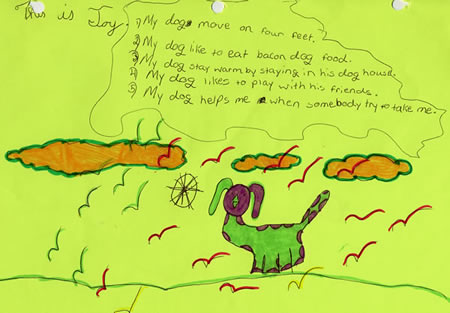 This is Joy.
1) My dog move on four feet.
2) My dog like to eat bacon dog food.
3) My dog stay warm by staying in his dog house.
4) My dog likes to play with his friends.
5) My dog helps me when somebody try to take me.